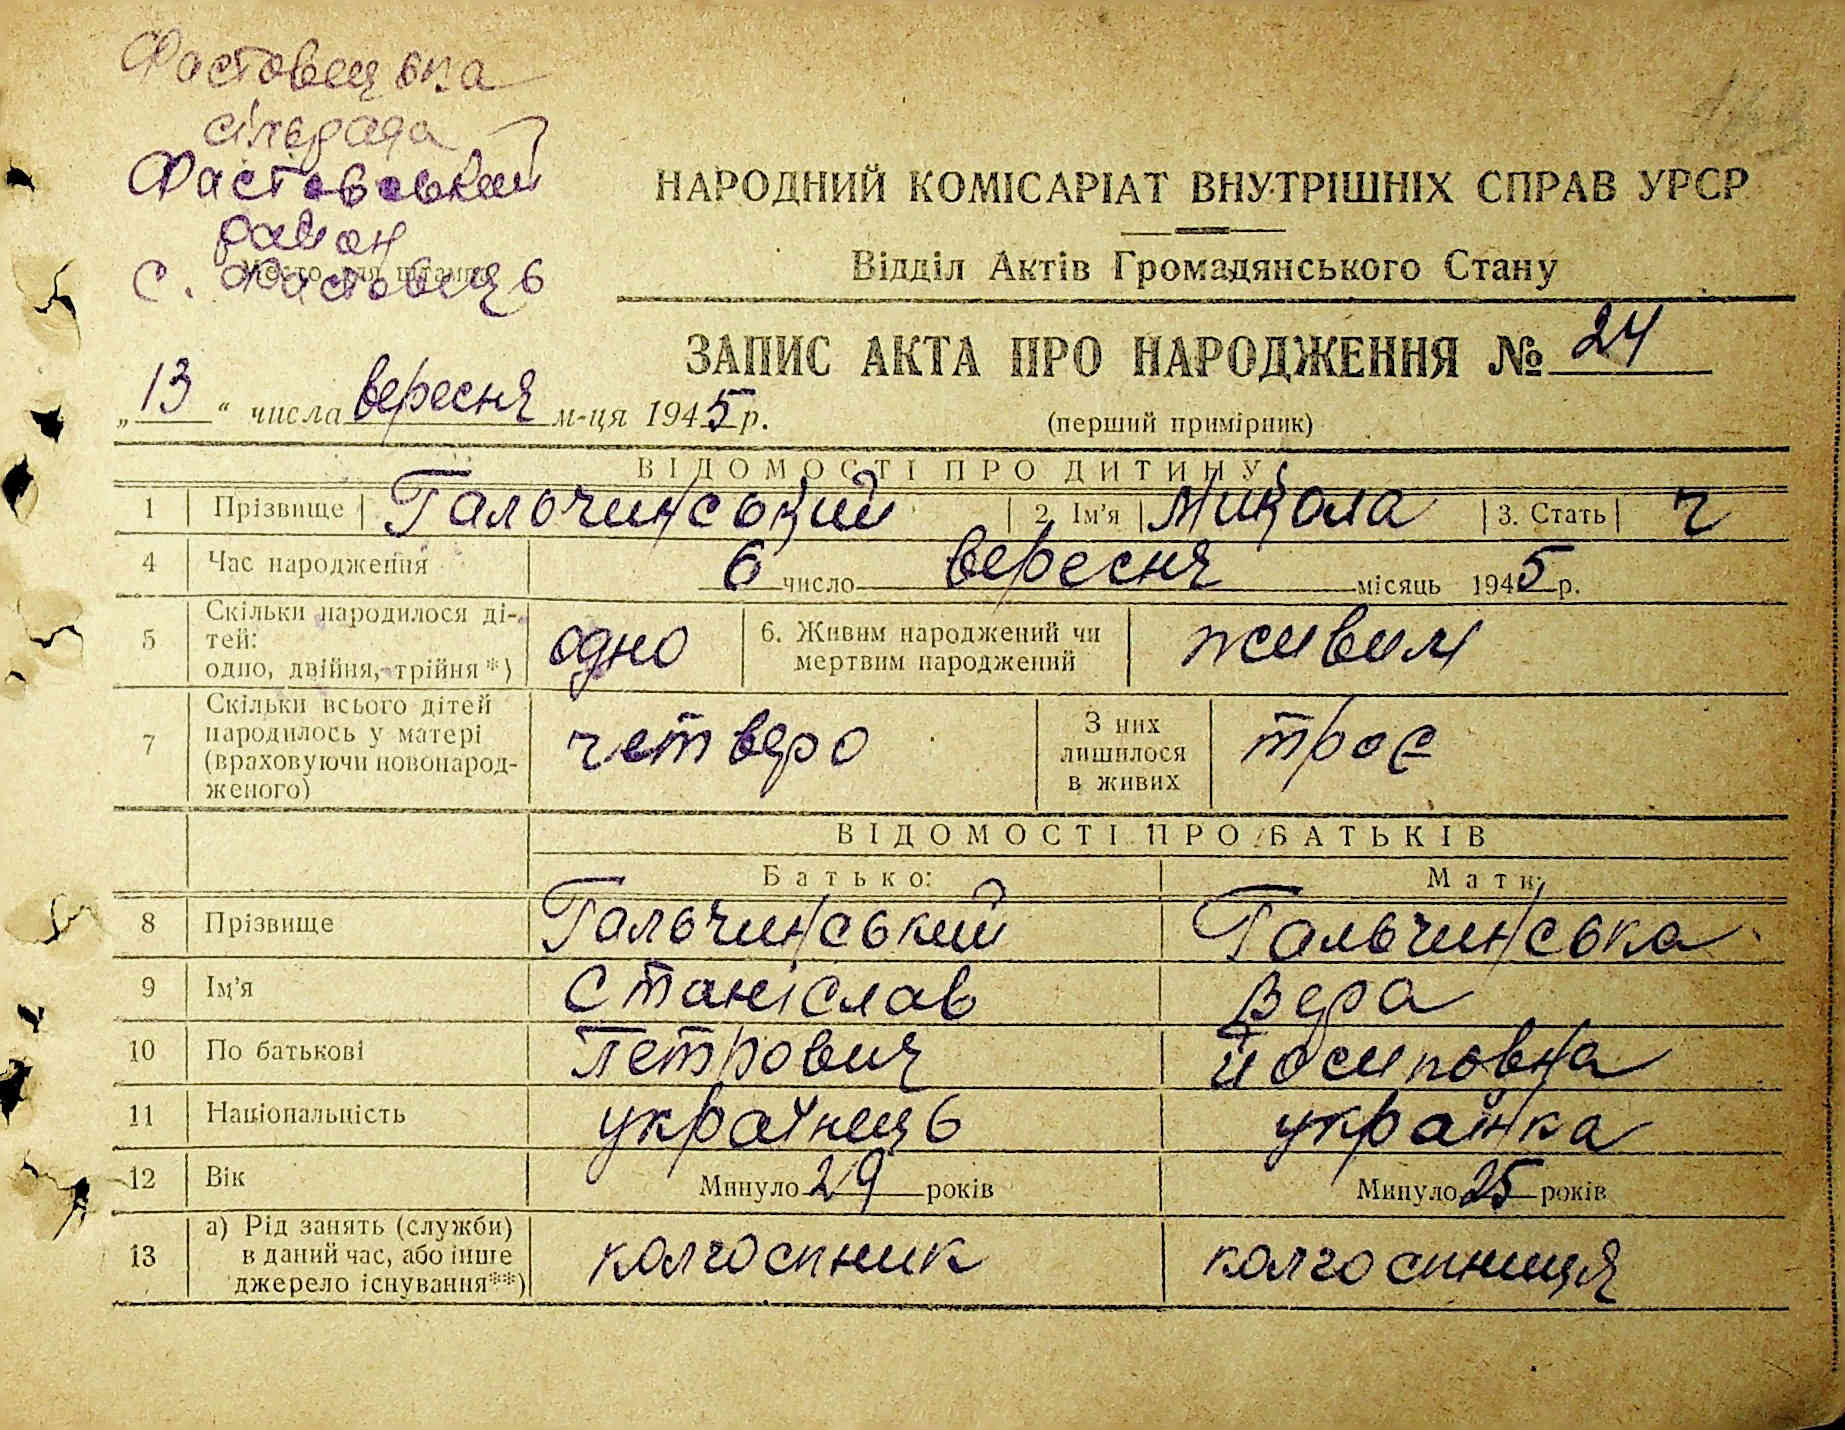 Фастовецька
сільрада
Фастовський
район
с. Фастовець
НАРОДНИЙ КОМІСАРІАТ ВНУТРІШНІХ СПРАВ УРСР
Відділ Актів Громадянського Стану
ЗАПИС АКТА ПРО НАРОДЖЕННЯ № 24
„13“ числа вересня м-ця 1945 р.
(перший примірник)
ВІДОМОСТІ ПРО ДИТИНУ
1 Прізвище Гальчинський 2. Ім'я Микола 3. Стать ч
4 Час народження 6 число вересня місяць 1945 р.
5 Скільки народилося ді-
тей:
одно, двійня, трійня*)
одно
6. Живим народжений чи
мертвим народжений
живим
7 Скільки всього дітей
народилось у матері
(враховуючи новонарод-
женого)
четверо
З них
лишилося
в живих
троє
ВІДОМОСТІ ПРО БАТЬКІВ
Батько: Мати:
8 Прізвище Гальчинський Гальчинська
9 Ім'я Станіслав Вера
10 По батькові Петрович Йосиповна
11 Національність українець українка
12 Вік Минуло 29 років Минуло 25 років
13 а) Рід занять (служби)
в даний час, або інше
джерело існування**)
колгоспник колгоспниця